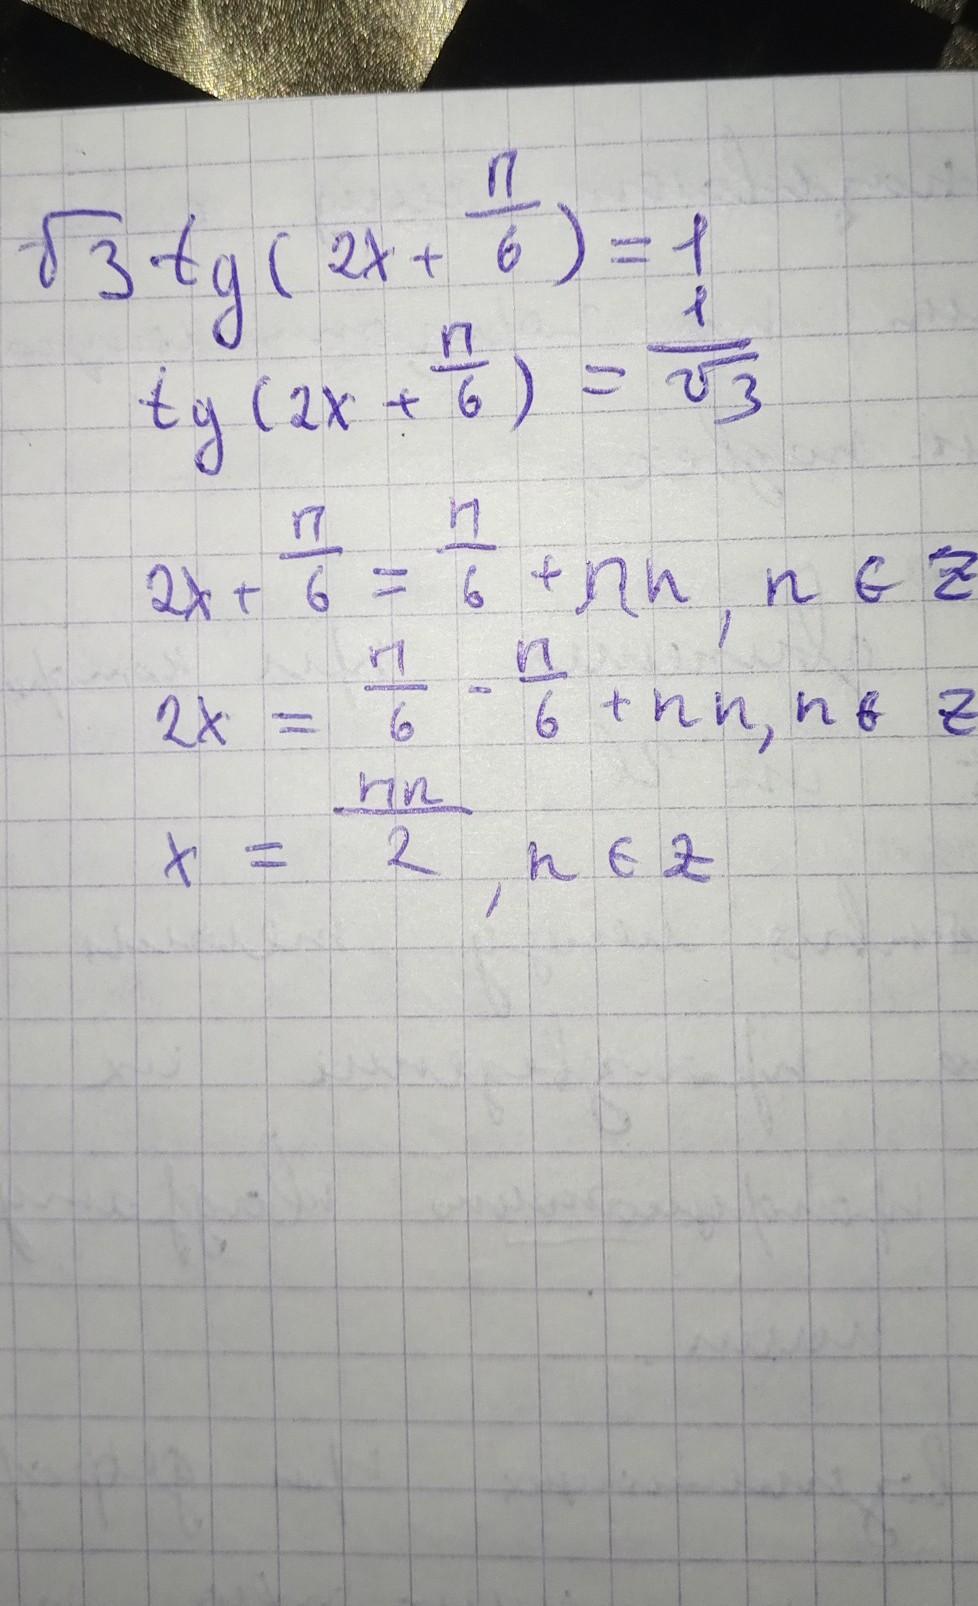 √3 tg(2x + π/6) = 1
tg(2x + π/6) = 1/√3
2x + π/6 = π/6 + πn, n ∈ Z
2x = π/6 - π/6 + πn, n ∈ Z
x = πn/2, n ∈ Z